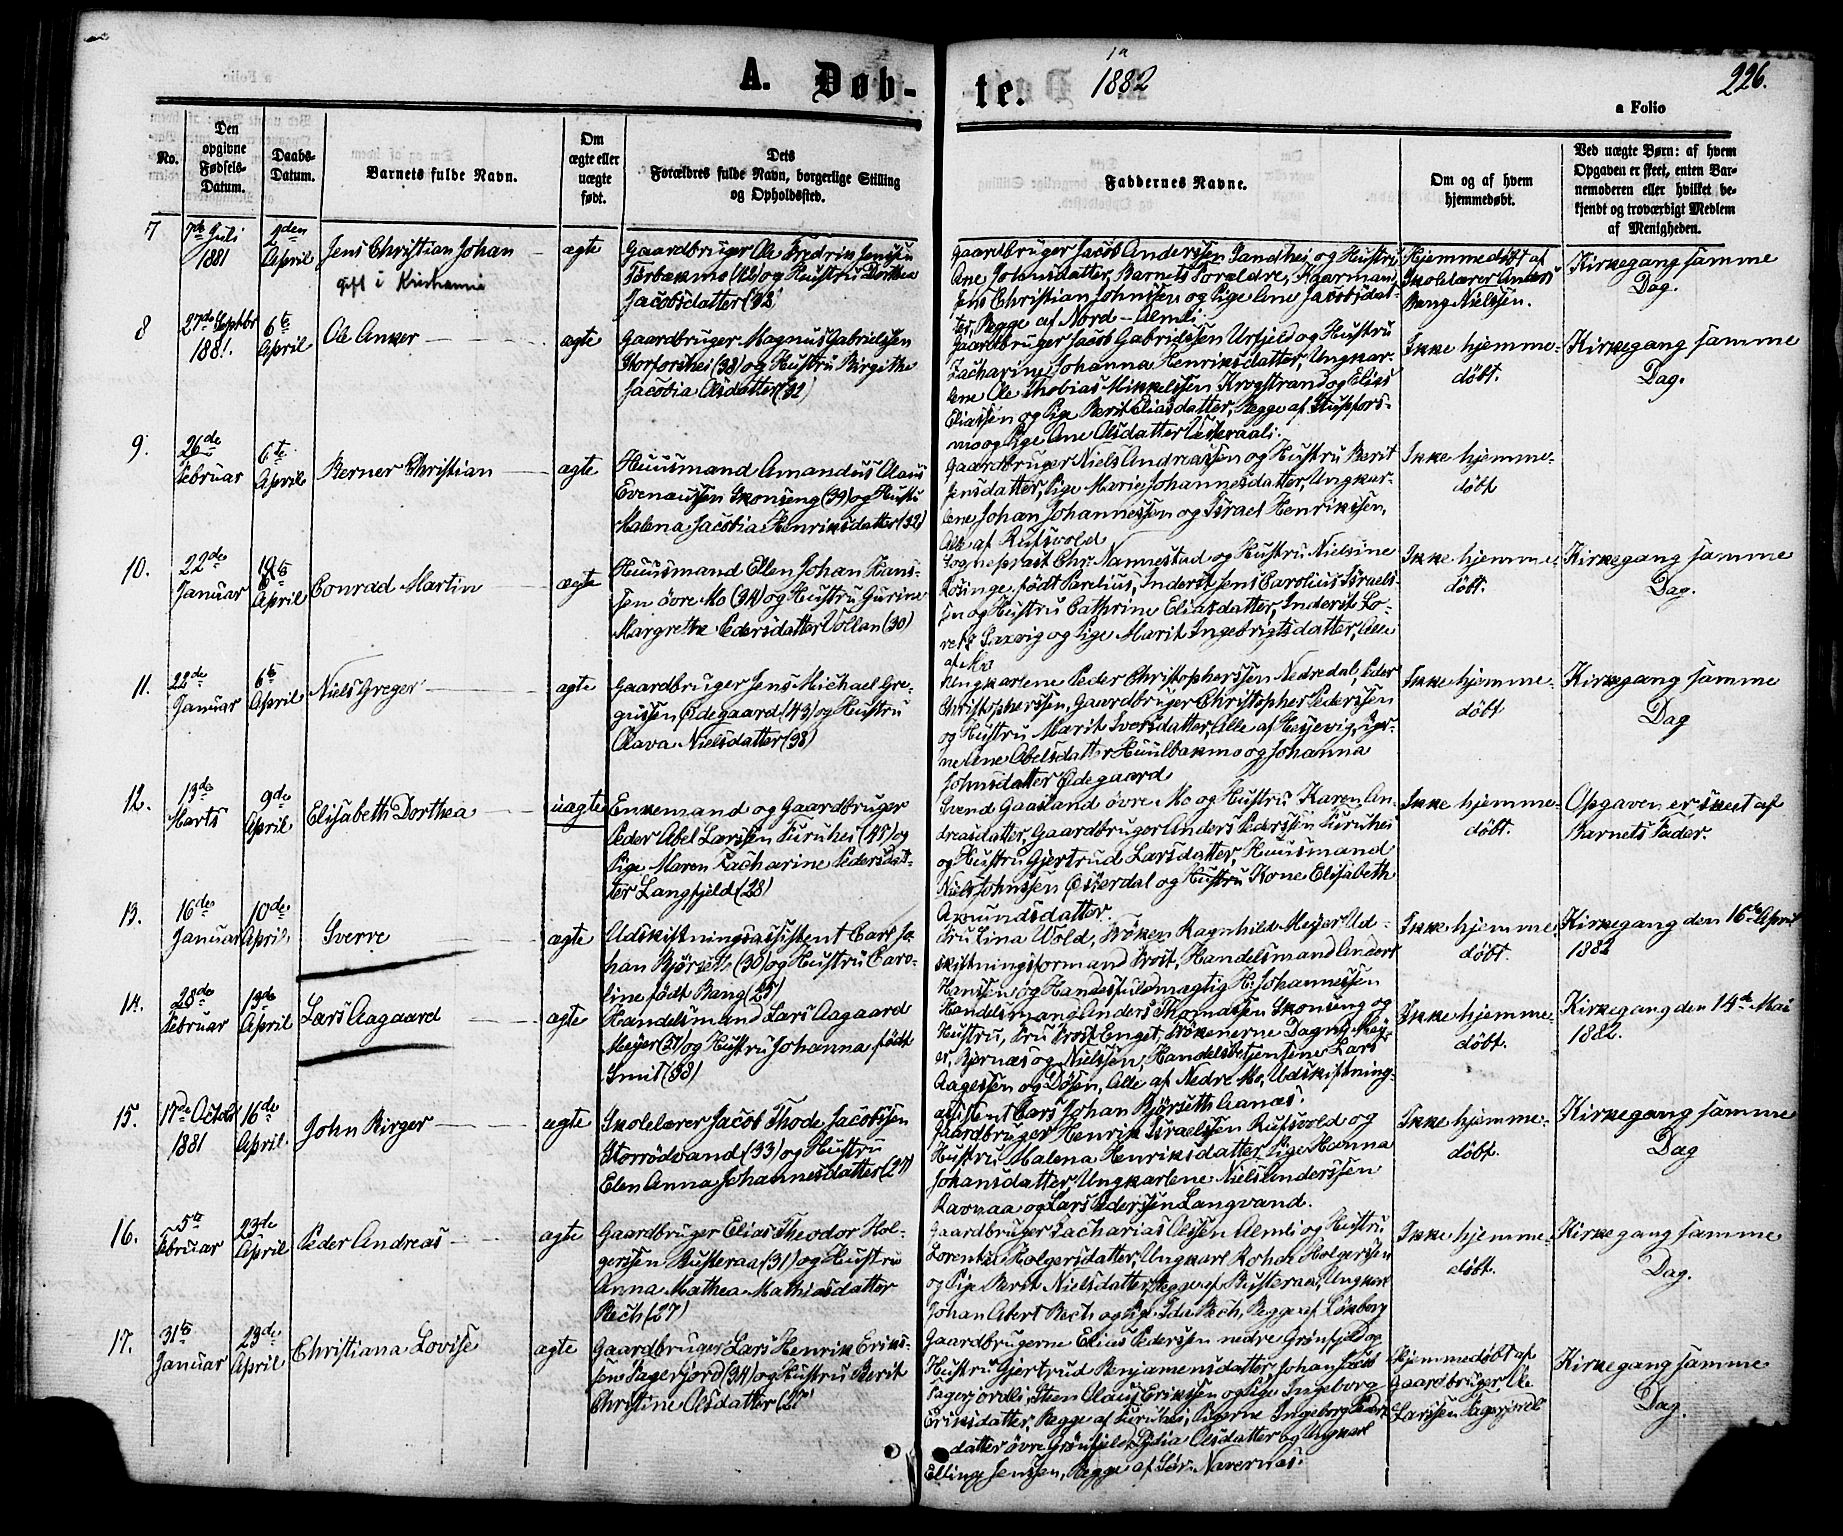 A. Døb-
te.
1a
1882
226.
a Folio
No.
Den opgivne Fødsels-Datum.
Daabs-Datum.
Barnets fulde Navn.
Om ægte eller uægte født.
Dets Forældres fulde Navn, borgerlige Stilling og Opholdssted.
Faddernes Navne.
Om og af hvem hjemmedøbt.
Ved uægte Børn: af hvem Opgaven er skeet, enten Barnemoderen eller hvilket bekjendt og troværdigt Medlem af Menigheden.
7
7de Juli
1881
2den
April
Jens Christian Johan
gift i Kristiania
ægte
Gaardbruger Ole Fredrik Jenssen
(42) og Hustru Dorthea
Jacobsdatter (32)
Gaardbruger Jacob Anderssen Sandhei og Hustru
Ane Johansdatter, Barnets Forældre,
Jens Christian Johnssen og Pige Ane Jacobsdat-
ter, Begge af Nord-Almli
Hjemmedøbt af
Skolelærer Anders
Bang Nielssen.
Kirkegang samme
Dag.
8
27de Septbr
1881.
6te
April
Ole Anker
ægte
Gaardbruger Magnus Gabrielssen
Storforshei (38) og Hustru Birgithe
Jacobia Olsdatter (32)
Gaardbruger Jacob Gabrielssen Urfjeld og Hustru
Zacharine Johanna Henriksdatter, Ungkar-
lene Ole Thobias Mikkelssen Krogstrand og Elias
Eliassen og Pige Berit Eliasdatter, Begge af Stupfors-
mo og Pige Ane Olsdatter Uskeraali
Ikke hjemme-
døbt.
Kirkegang samme
Dag.
9.
26de
Februar
6te
April
Berner Christian
ægte
Huusmand Amandus Olaus
Evenaussen Skonseng (39) og Hustru
Malena Jacobia Henriksdatter (32)
Gaardbruger Niels Andreassen og Hustru Berit
Jensdatter, Pige Marie Johannesdatter, Ungkar-
lene Johan Johannessen og Israel Henrikssen,
Alle af Rufsvold
Ikke hjemme-
døbt
10.
22de
Januar
18te
April
Conrad Martin
ægte
Huusmand Ellen Johan Hans-
sen øvre Mo (34) og Hustru Gurine
Margrethe Pedersdatter Vollan (30)
Sogneprast Chr. Nannestad og Hustru Nielsine
Rosinge, født Parelius, Inderst Jens Carolius Israels-
sen og Hustru Cathrine Eliasdatter, Inderst Lo-
rents Saxvig og Pige Marit Ingebrigtsdatter, Alle
af Mo
Ikke hjemme
døbt.
Kirkegang samme
Dag.
11.
22de
Januar
6te
April
Niels Greger
ægte
Gaardbruger Jens Michael Gre-
gussen Ødegaard (43) og Hustru
Olava Nielsdatter (38)
Ungkarlene Peder Christopherssen Nedredal, Peder
Christopherssen, Gaardbruger Christopher Pederssen
og Hustru Marit Iversdatter, Alle af Hesjevig, Piger-
ne Ane Abelsdatter Huulbakmo og Johanna
Johnsdatter Ødegaard
Ikke hjemme-
døbt
Kirkegang samme
Dag
12.
13de
Marts
9de
April
Elisabeth Dorthea
uægte
Enkemand og Gaardbruger
Peder Abel Larssen Furuhei (45) og
Pige Maren Zacharine Pedersdat-
ter Langfjeld (28)
Svend Gaasland øvre Mo og Hustru Karen An-
dreasdatter, Gaardbruger Anders Pederssen Furuhei
og Hustru Gjertrud Larsdatter, Huusmand
Niels Johnssen Østerdal og Hustru Kone Elisabeth
Amundsdatter.
Ikke hjemme-
døbt.
Opgaven er skeet af
Barnets Fader.
13.
16de
Januar
10de
April
Sverre
ægte
Udskiftningsassistent Carl Jo-
han Bjørseth (30) og Hustru Caro-
line født Bang (25)
Fru Lina Wold, Frøken Ragnhild Meyer Ud-
skiftningsformand Trost, Handelsmand Andors
Hanssen og Handelsfuldmægtig H. Johannessen
Ikke hjemme
døbt.
Kirkegang den 16de April
1882
14.
28de
Februar
13de
April
Lars Aagaard
ægte
Handelsmand Lars Aagaard
Meyer (51) og Hustru Johanna født
Smit (38)
Handelsmand Anders Thomassen Skonseng og
Hustru, Fru Trost Enget, Frøknerne Dagny Mey-
er, Bjørnæs og Nielssen, Handelsbetjentene Lars
Aagessen og Døsen, Alle af Nedre Mo, Udskiftning-
assistent Carl Johan Bjørseth Aanæs.
Ikke hjemme-
døbt.
Kirkegang den 14de Mai
1882.
15.
17de Octobr
1881
16de
April.
John Birger
ægte
Skolelærer Jacob Thode Jacobssen
Storrødvand (33) og Hustru
Elen Anna Johannesdatter (27)
Gaardbruger Henrik Israelssen Rufsvold og
Hustru Malena Henriksdatter, Pige Hanna
Johansdatter Ungkarlene Niels Anderssen
Ravnaa og Lars Pederssen Langvand.
Ikke hjemme-
døbt.
Kirkegang samme
Dag
16.
5te
Februar
23de
April
Peder Andreas
ægte
Gaardbruger Elias Theodor Hol-
gerssen Busteraa (31) og Hustru
Anna Mathea Mathiasdatter
Bech (27)
Gaardbruger Zacharias Olssen Almli og Hustru
Lorentse Holgersdatter, Ungkarl Johan Holgerssen
og Pige Berit Nielsdatter, Begge af Busteraa, Ungkarl
Johan Albert Bech og Pige Ida Bech, Begge af Lønborg
Ikke hjemme-
døbt.
Kirkegang samme
Dag.
17.
31te
Januar
23de
April
Christiana Lovise
ægte
Gaardbruger Lars Henrik Eriks-
sen Fagerjord (34) og Hustru Berit
Christine Olsdatter (28)
Gaardbrugerne Elias Pederssen nedre Grønfjeld og
Hustru Gjertrud Benjaminsdatter, Johan Jacob
Fagerjordli, Sten Olaus Erikssen og Pige Ingeborg
Eriksdatter, Begge af Furuhei, Pigerne Ingeborg Peders-
datter øvre Grønfjeld, Lydia Olsdatter og Ungkarl
Elling Jenssen, Begge af Sør-Nævernæs.
Hjemmedøbt af
Gaardbruger Ole
Larssen Fagerjord
Kirkegang samme
Dag.